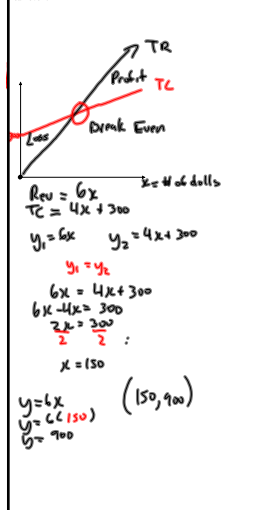 TR
Profit TC
Loss
Break Even
x = # of dolls
Rev = 6x
TC = 4x + 300
y₁ = 6x y₂ = 4x + 300
y₁ = y₂
6x = 4x + 300
6x - 4x = 300
2x = 300
2 2 :
x = 150
y = 6x (150, 900)
y = 6(150)
y = 900